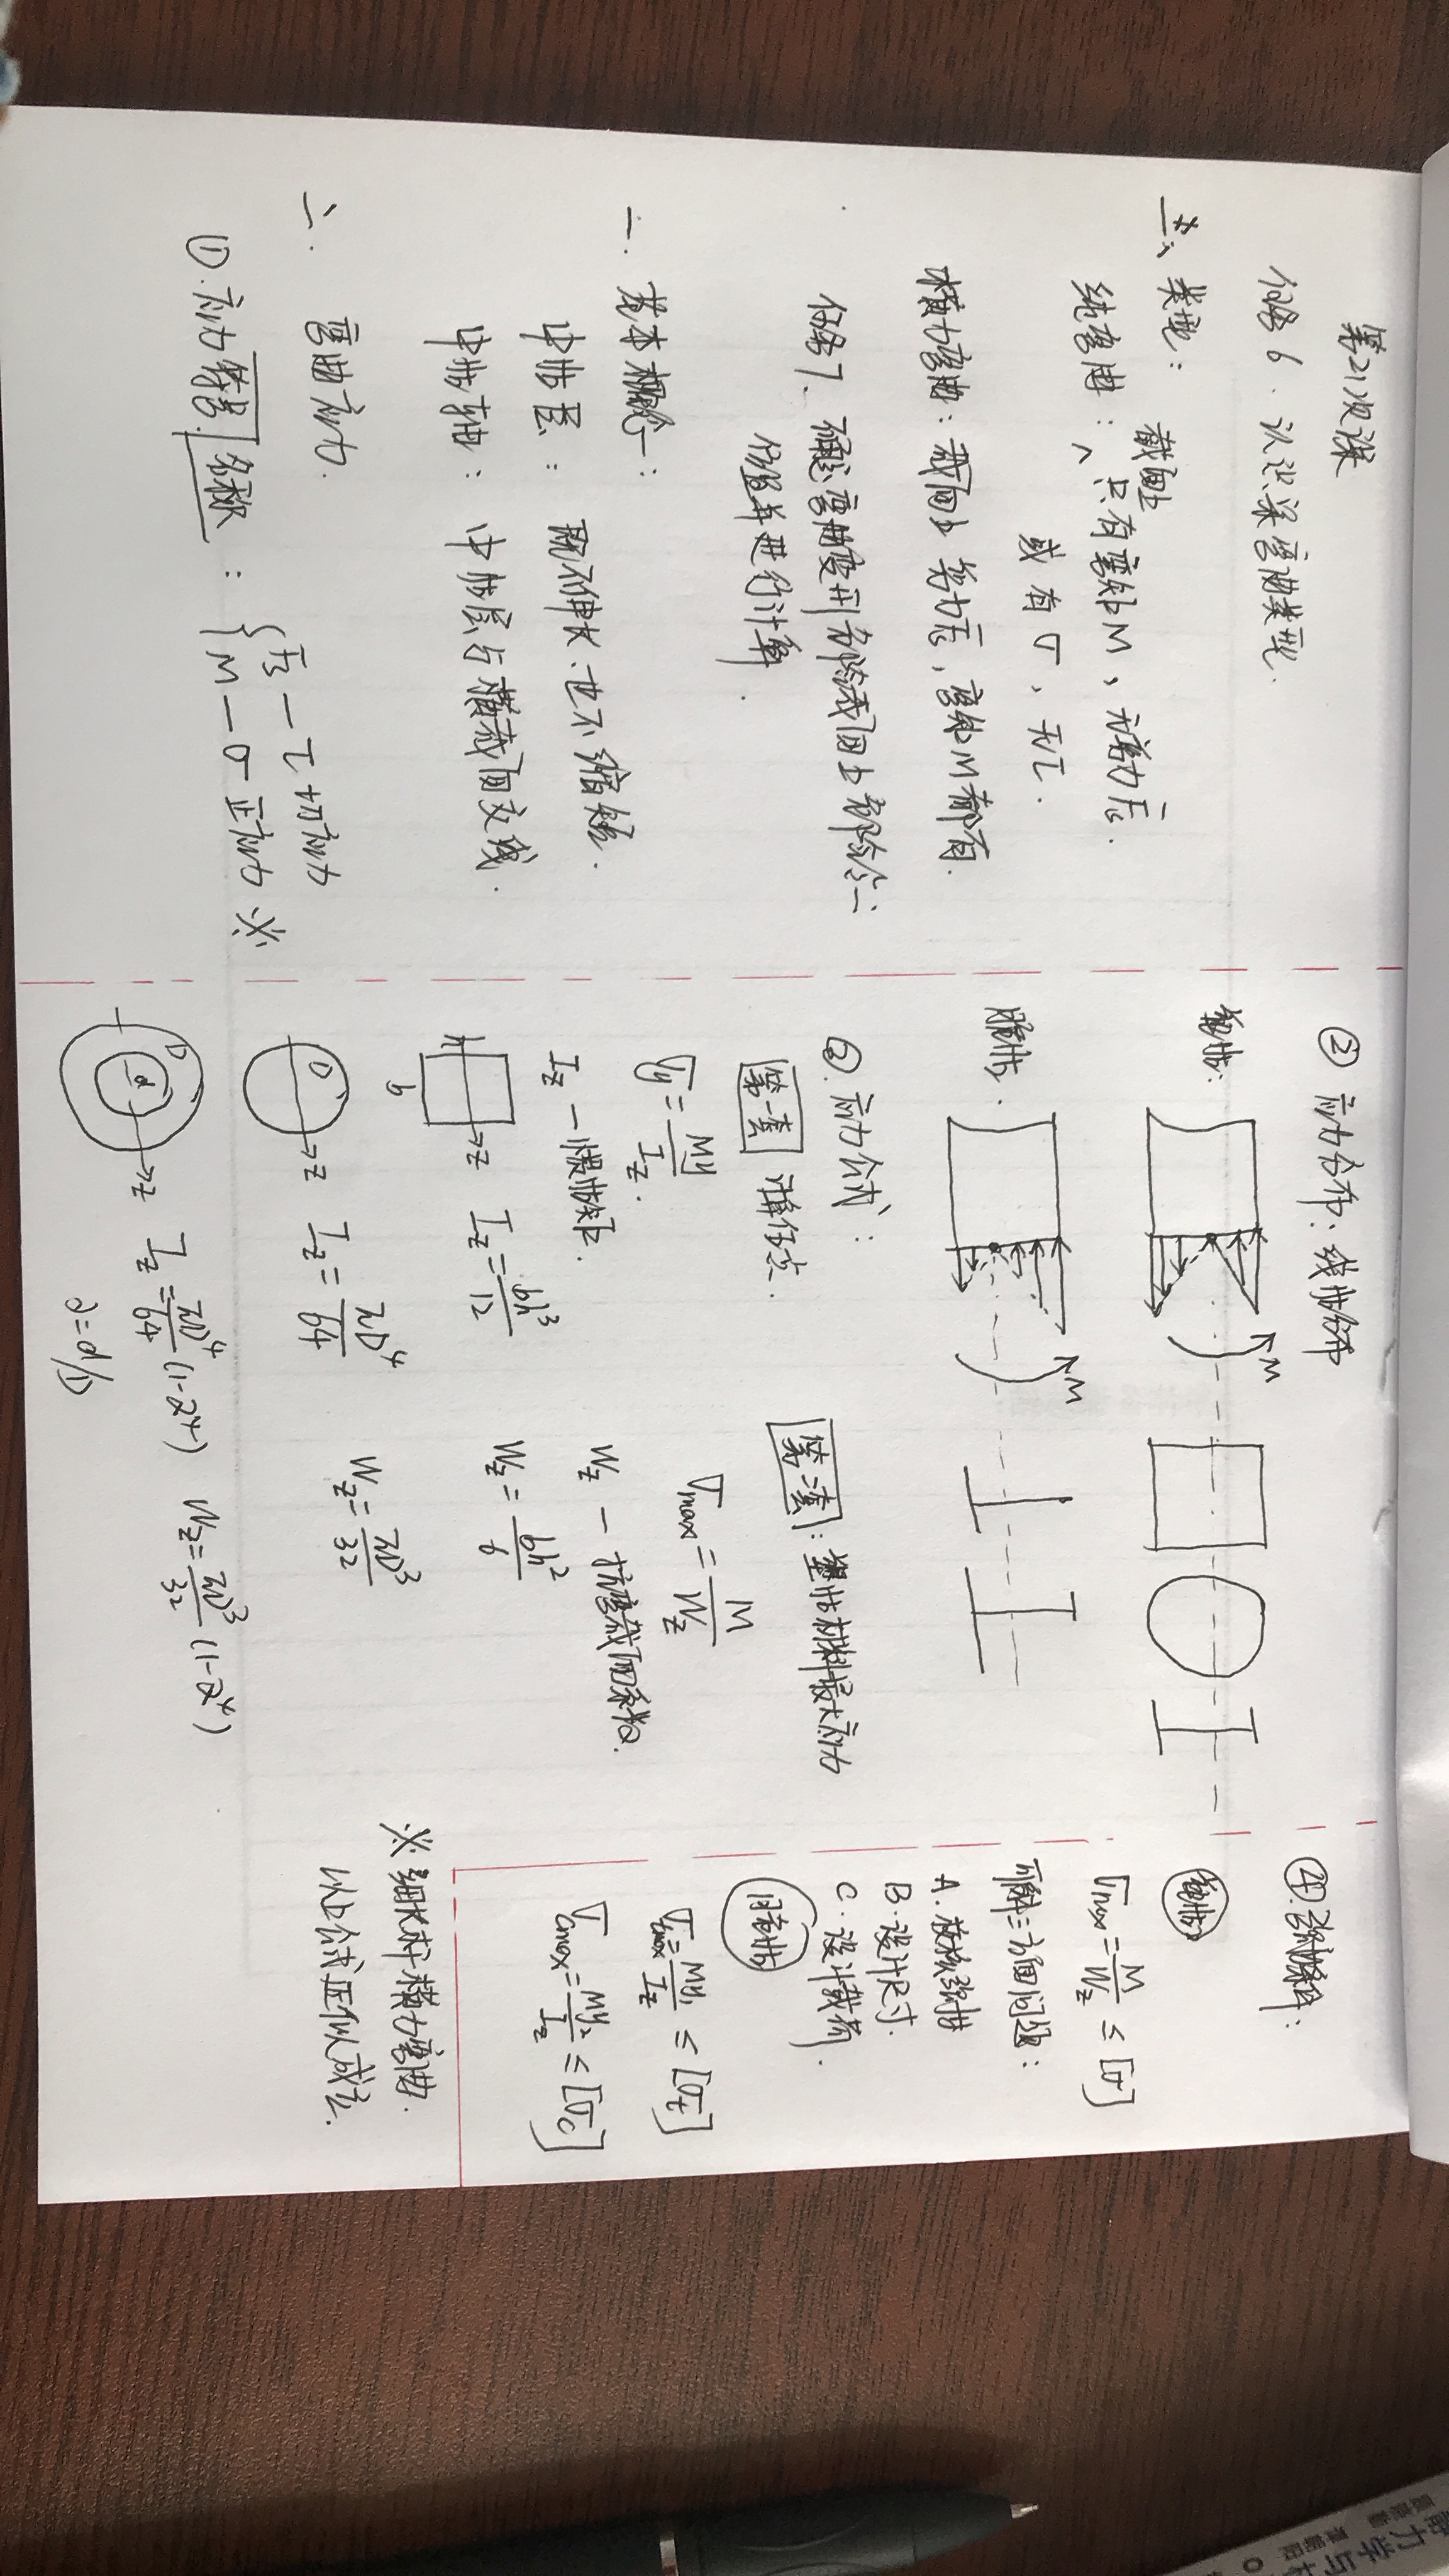 第21次课
任务6. 认识梁弯曲类型.
三、类型:
截面上
纯弯曲: 只有弯矩M, 无剪力Fs.
或有σ, 无τ.
横力弯曲: 截面上剪力Fs, 弯矩M都有.
任务7. 确定弯曲变形危险截面上危险应力
位置并进行计算.
一. 基本概念:
中性层: 既不伸长、也不缩短.
中性轴: 中性层与横截面交线.
二. 弯曲应力.
① 应力符号.名称: { Fs — τ 切应力
M — σ 正应力 ※
② 应力分布: 线性分布
塑性:
M
脆性.
M
③. 应力公式:
第一套 计算任意点.
σy = My/Iz.
Iz — 惯性矩.
h b z Iz = bh³/12
D z Iz = πD⁴/64
D d z Iz = πD⁴/64 (1-α⁴)
α = d/D
第二套: 塑性材料最大应力
σmax = M/Wz
Wz — 抗弯截面系数.
Wz = bh²/6
Wz = πD³/32
Wz = πD³/32 (1-α⁴)
④. 强度条件:
塑性
σmax = M/Wz ≤ [σ]
可解三方面问题:
A. 校核强度
B. 设计尺寸.
C. 设计载荷.
脆性
σtmax = My₁/Iz ≤ [σt]
σcmax = My₂/Iz ≤ [σc]
※ 细长杆横力弯曲.
以上公式近似成立.
力学与